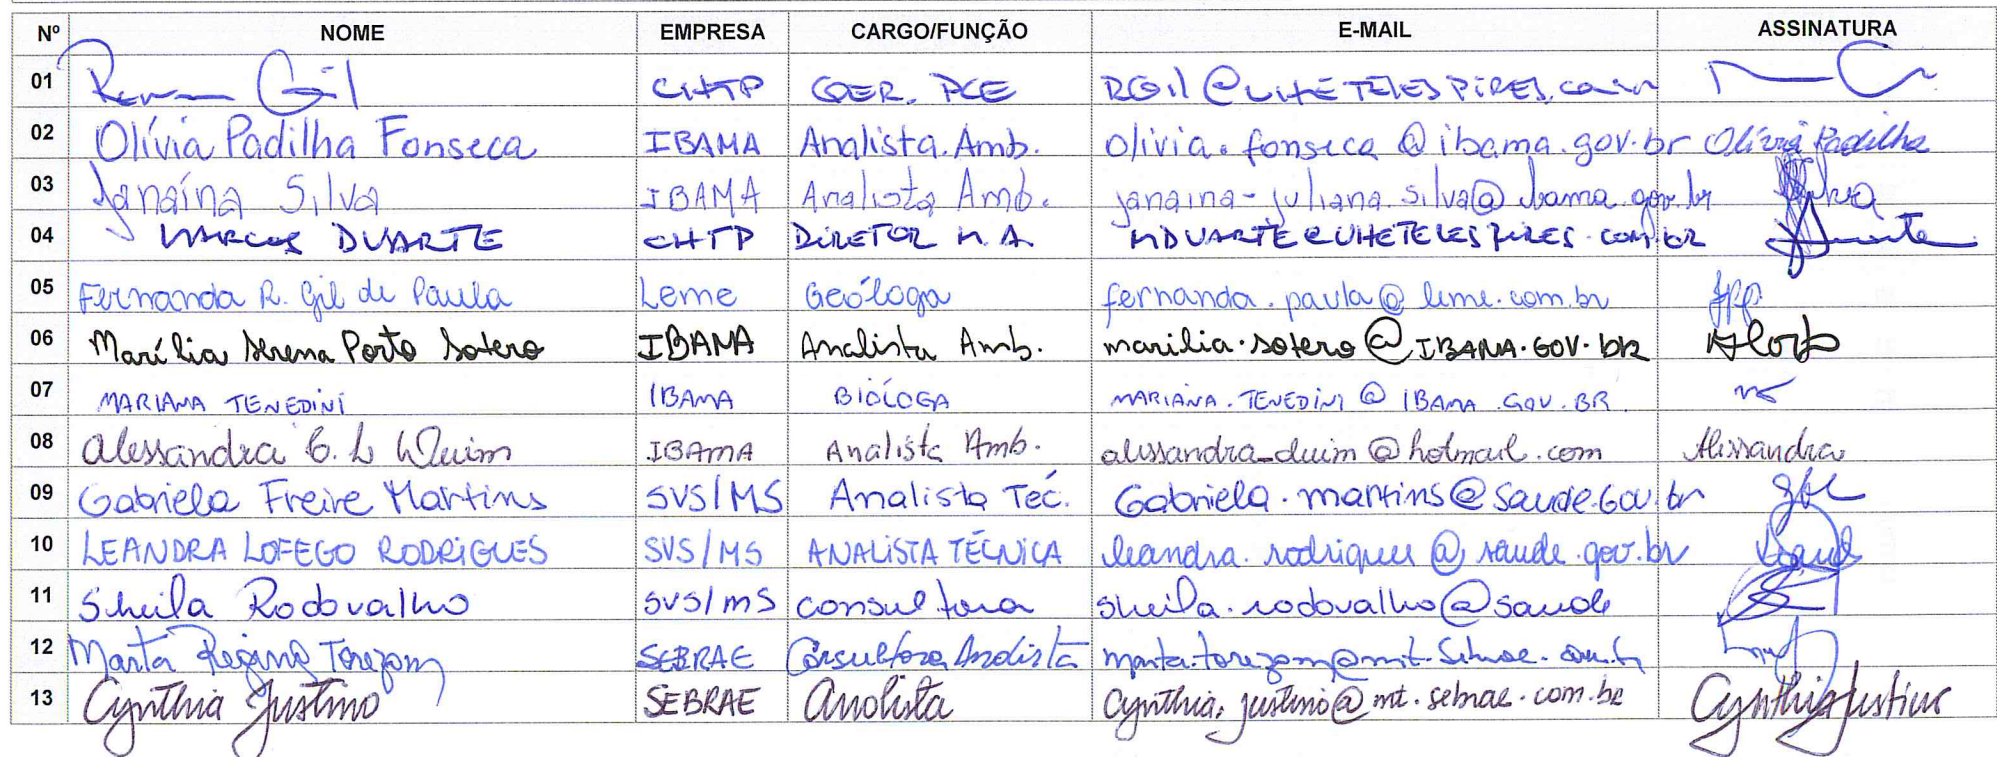 Nº NOME EMPRESA CARGO/FUNÇÃO E-MAIL ASSINATURA
01 Gil CHTP GER. PCE RGil@UHETELESPIRES.com
02 Olívia Padilha Fonseca IBAMA Analista Amb. olivia.fonseca@ibama.gov.br Olívia Padilha
03 Janaína Silva IBAMA Analista Amb. janaina-juliana.silva@ibama.gov.br Silva
04 MARCOS DUARTE CHTP DIRETOR M.A. MDUARTE@UHETELESPIRES.COM.BR Duarte
05 Fernanda R. Gil de Paula Leme Geóloga fernanda.paula@leme.com.br
06 Marília Serena Porto Sotero IBAMA Analista Amb. marilia.sotero@IBAMA.GOV.bR
07 MARIANA TENEDINI IBAMA BIÓLOGA MARIANA.TENEDINI@IBAMA.GOV.BR
08 Alessandra IBAMA Analista Amb. alessandra_duim@hotmail.com Alessandra
09 Gabriela Freire Martins SVS/MS Analista Téc. Gabriela.martins@saude.Gov.br
10 LEANDRA LOFEGO RODRIGUES SVS/MS ANALISTA TÉCNICA leandra.rodrigues@saude.gov.br
11 Sheila Rodovalho SVS/MS consultora sheila.rodovalho@saude
12 Marta Regina Torezam SEBRAE Consultora Analista marta.torezam@mt.sebrae.com.br
13 Cynthia Justino SEBRAE Analista Cynthia.justino@mt.sebrae.com.br Cynthia Justino